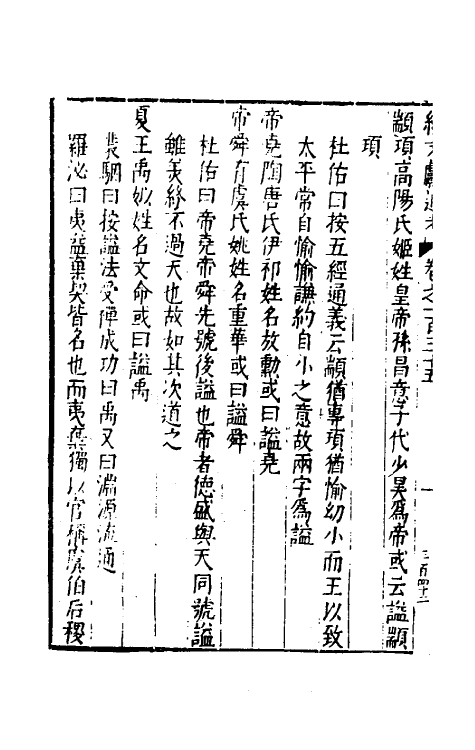 續文獻通考 卷之一百三十五 一 三百四十二
顓頊高陽氏姬姓皇帝孫昌意子代少昊爲帝或云謚顓
頊
杜佑曰按五經通義云顓猶專頊猶愉幼小而王以致
太平常自愉愉謙約自小之意故兩字爲謚
帝堯陶唐氏伊祁姓名放勳或曰謚堯
帝舜有虞氏姚姓名重華或曰謚舜
杜佑曰帝堯帝舜先號後謚也帝者德盛與天同號謚
雖美終不過天也故如其次道之
夏王禹姒姓名文命或曰謚禹
裴駰曰按謚法受禪成功曰禹又曰淵源流通
羅泌曰夷益棄契皆名也而夷棄獨以官稱虞伯后稷